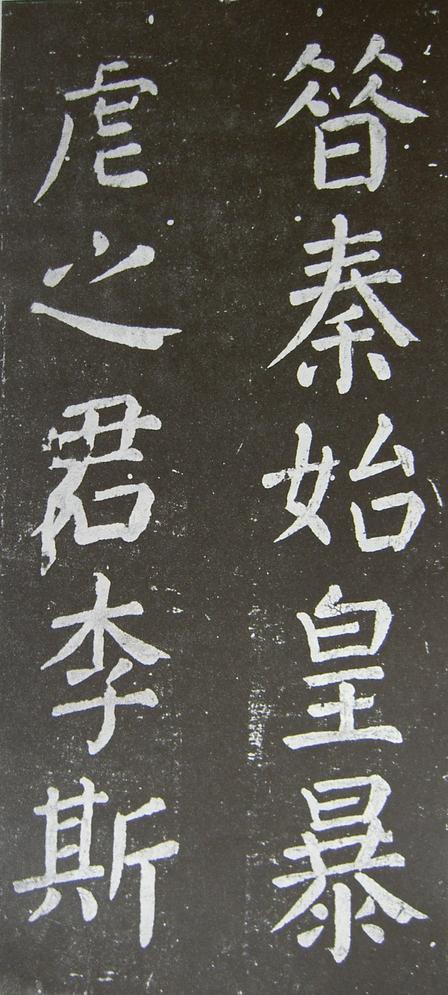 昔秦始皇暴
虐之君李斯